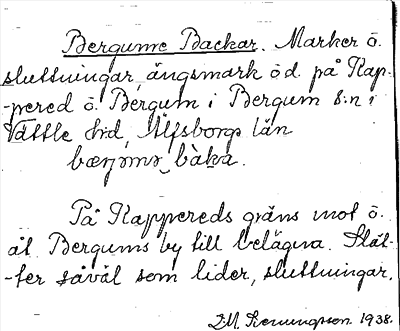 Bergume Backar. Marker o.
sluttningar, ängsmark o d. på Kap-
-pered ö. Bergum i Bergum s:n i
Vättle hrd, Älfsborgs län
På Kappereds gräns mot ö.
åt Bergums by till belägna. Slät-
-ter såväl som lider, sluttningar.
1938.